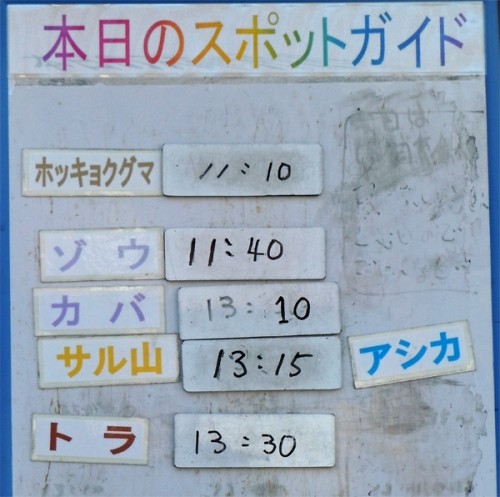 本日のスポットガイド
ホッキョクグマ 11:10
ゾウ 11:40
カバ 13:10
サル山 13:15 アシカ
トラ 13:30